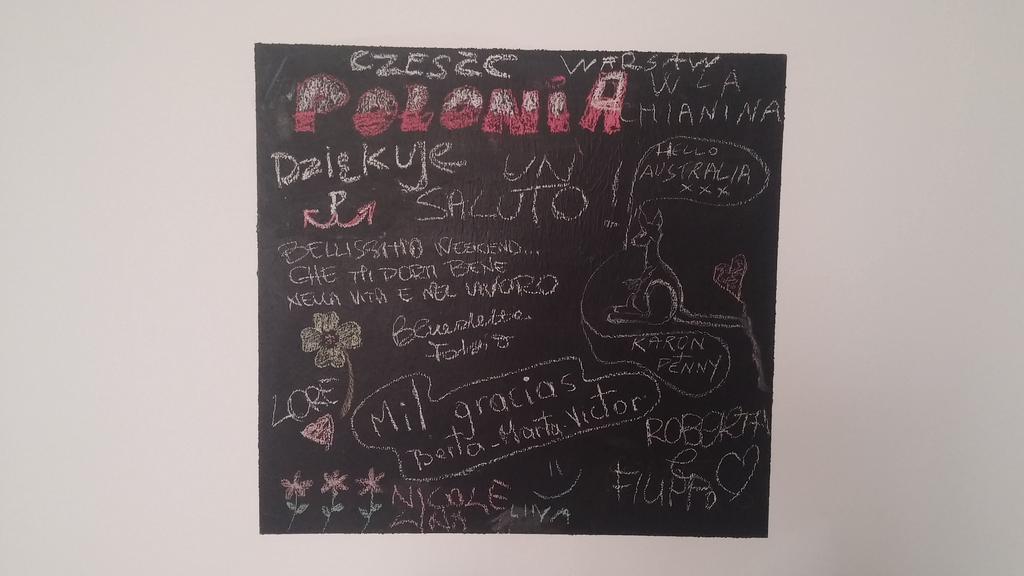 CZEŚĆ WARSAW
POLONIA
W LA
CHIANINA
DZIĘKUJE
UN
SALUTO!
P
HELLO
AUSTRALIA
xxx
BELLISSIMO WEEKEND...
CHE TI PORTI BENE
NELLA VITA E NEL LAVORO
Benedetta
KARON
PENNY
LORE
Mil gracias
Berta-Marta-Victor
ROBERTA
e
FILIPPO
NICOLE
LINA